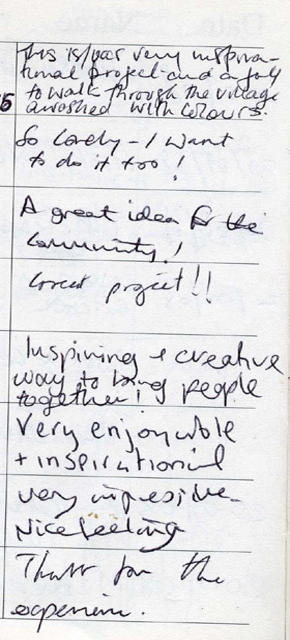 This is/was very inspira-
tional project and a joy
to walk through the village
awashed with colours.
So lovely - I want
to do it too!
A great idea for the
community!
Great project!!
Inspiring + creative
way to bring people
together!
Very enjoyable
+ inspirational
very impressive
Nice feeling
Thanks for the
experience.